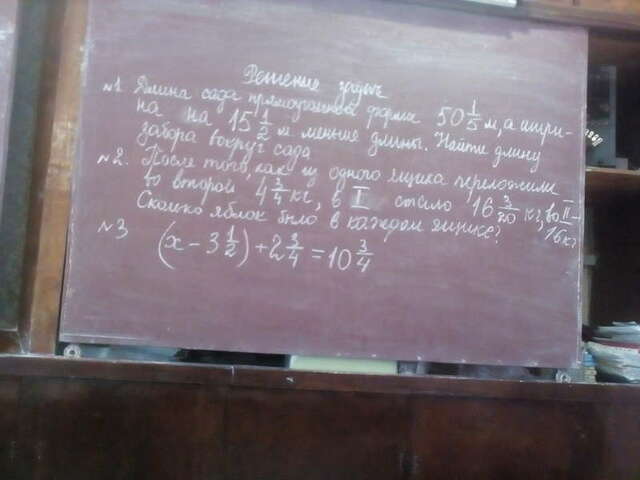 Решение задач
№1. Длина сада прямоугольной формы 50 1/5 м, а шири-
на на 15 1/2 м меньше длины. Найти длину
забора вокруг сада
№2. После того, как из одного ящика переложили
во второй 4 3/4 кг, в I стало 16 3/20 кг, во II -
16 кг
Сколько яблок было в каждом ящике?
№3 (x - 3 1/2) + 2 3/4 = 10 3/4